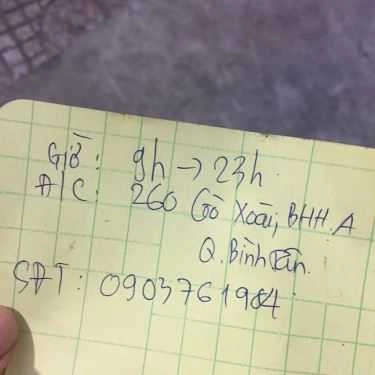 Giờ: 9h → 23h
A/C: 260 Gò Xoài, BHH.A
Q. Bình Tân.
SĐT: 0903761984